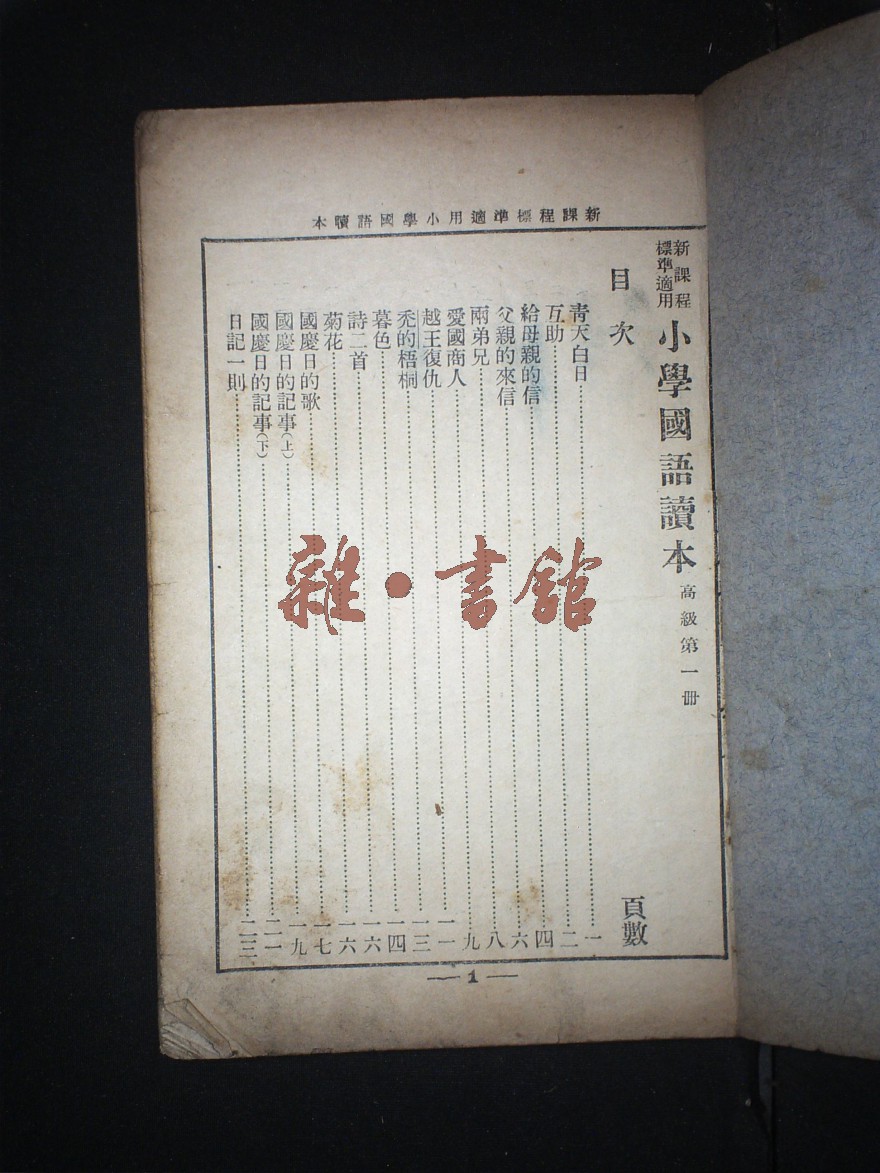 新課程標準適用小學國語讀本
新課程標準適用
小學國語讀本 高級第一冊
目次 頁數
青天白日 一
互助 二
給母親的信 四
父親的來信 六
兩弟兄 八
愛國商人 九
越王復仇 一一
禿的梧桐 一三
暮色 一四
詩二首 一六
菊花 一六
國慶日的歌 一七
國慶日的記事(上) 一九
國慶日的記事(下) 二一
日記一則 二三
— 1 —
雜·書館